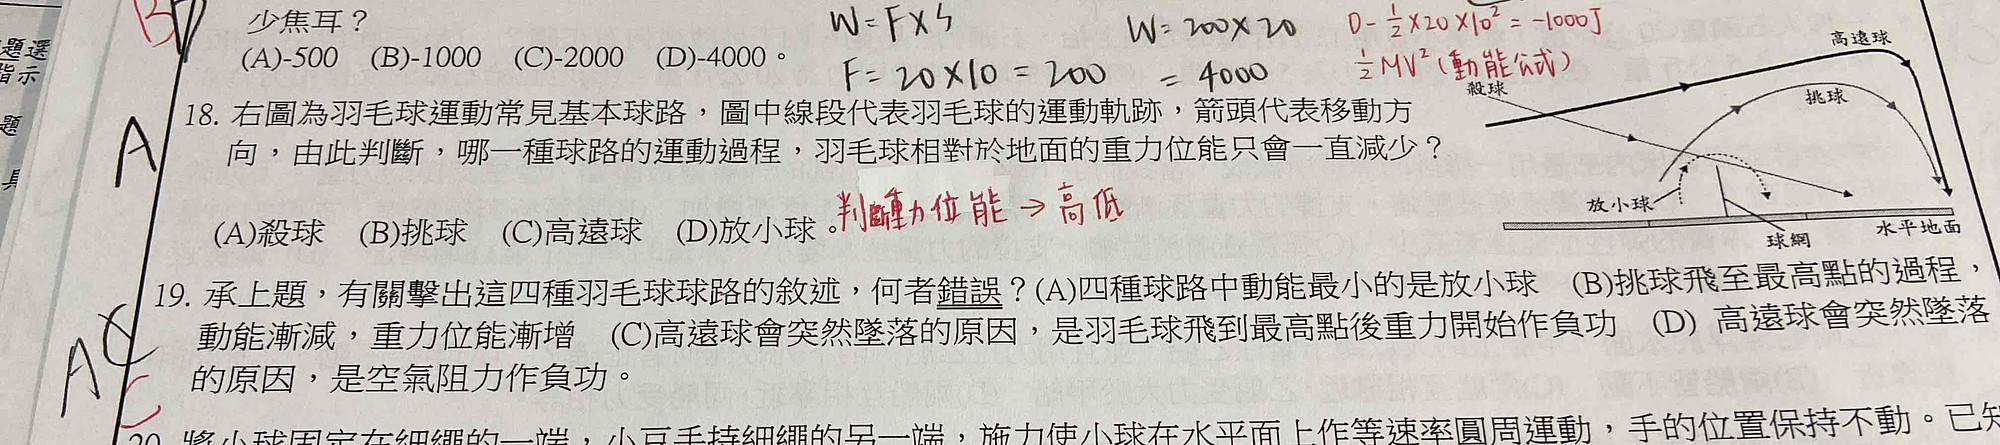 題選
指示
題
少焦耳？
(A)-500 (B)-1000 (C)-2000 (D)-4000。
W=F×S
F=20×10=200
W=200×20
=4000
0-½×20×10²=-1000J
½MV²(動能公式)
A
18. 右圖為羽毛球運動常見基本球路，圖中線段代表羽毛球的運動軌跡，箭頭代表移動方
向，由此判斷，哪一種球路的運動過程，羽毛球相對於地面的重力位能只會一直減少？
(A)殺球 (B)挑球 (C)高遠球 (D)放小球。
判斷動位能→高低
高遠球
殺球
挑球
放小球
球網
水平地面
AC
C
19. 承上題，有關擊出這四種羽毛球球路的敘述，何者錯誤？(A)四種球路中動能最小的是放小球 (B)挑球飛至最高點的過程，
動能漸減，重力位能漸增 (C)高遠球會突然墜落的原因，是羽毛球飛到最高點後重力開始作負功 (D) 高遠球會突然墜落
的原因，是空氣阻力作負功。
20. 將小球固定在細繩的一端，小豆手持細繩的另一端，施力使小球在水平面上作等速率圓周運動，手的位置保持不動。已知